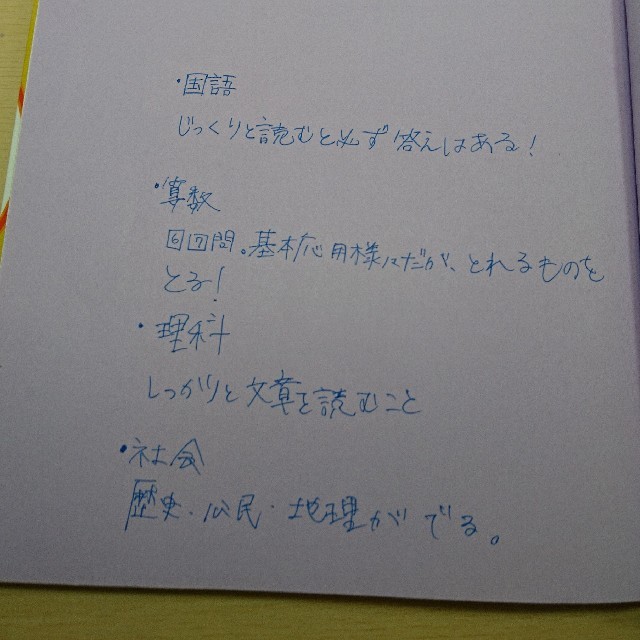 ・国語
じっくりと読むと必ず答えはある!
・算数
⑥⑦問。基本応用様々だが、とれるものを
とる!
・理科
しっかりと文章を読むこと
・社会
歴史・公民・地理がでる。